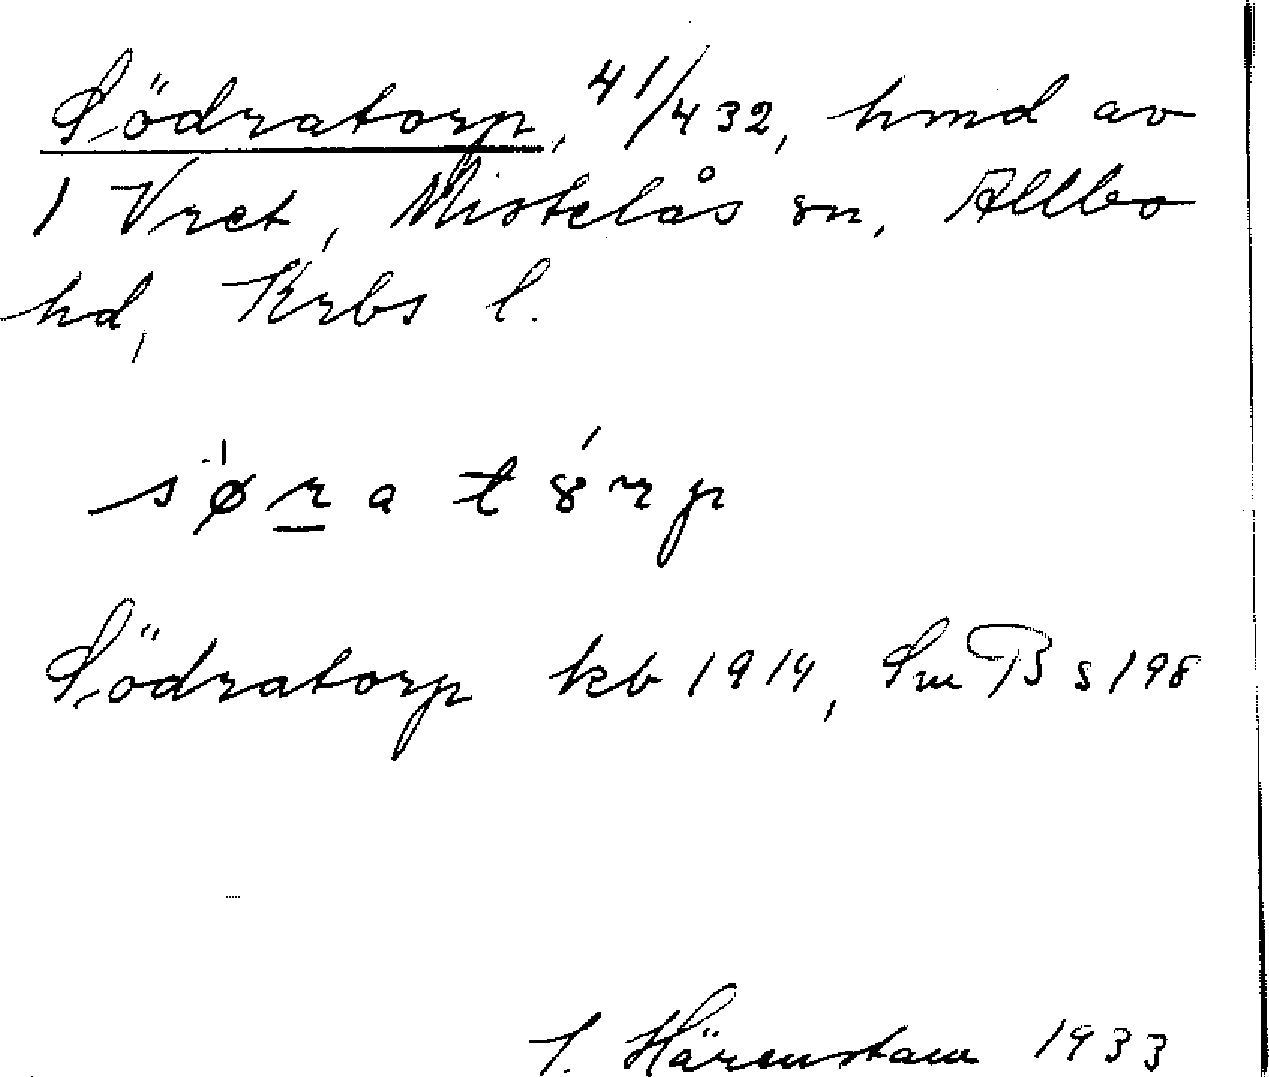 Södratorp, 41/432, hmd av
1 Vret, Mistelås sn, Allbo
hd, Krbs l.
søra tȣrp
Södratorp kb 1914, Sm B s 198
Härenstam 1933